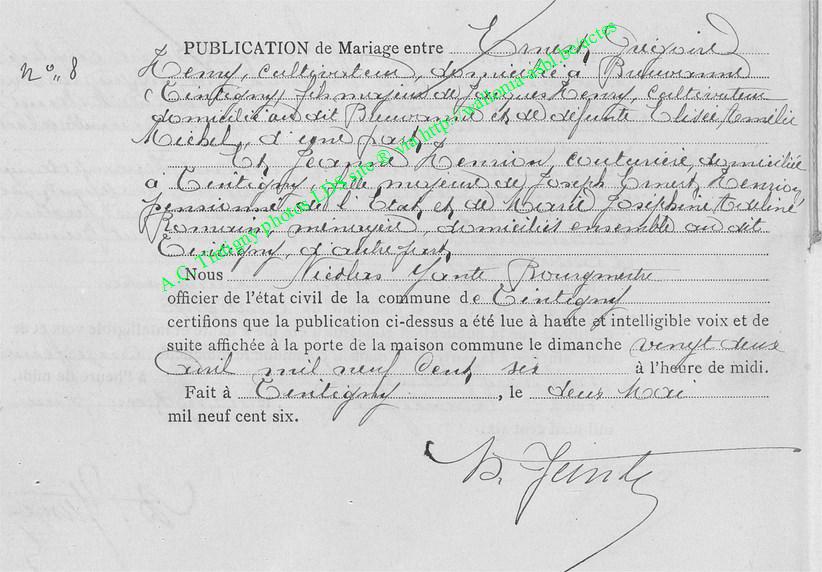 N° 8
PUBLICATION de Mariage entre Ernest Grégoire
Henry, cultivateur, domicilié à Breuvanne
(Tintigny) fils majeur de Jacques Henry, cultivateur
domicilié au dit Breuvanne et de défunte Elise Amélie
Michel, d'une part,
Et Jeanne Henrion, couturière, domiciliée
à Tintigny, fille majeure de Joseph Ernest Henrion,
pensionné de l'Etat, et de Marie Joséphine Adeline
Romain, ménagère, domiciliés ensemble au dit
Tintigny, d'autre part.
Nous Nicolas Yante Bourgmestre
officier de l'état civil de la commune de Tintigny
certifions que la publication ci-dessus a été lue à haute et intelligible voix et de
suite affichée à la porte de la maison commune le dimanche vingt deux
avril mil neuf cent six à l'heure de midi.
Fait à Tintigny, le deux Mai
mil neuf cent six.
A.C. Tintigny photos LDS site ® via http://wallonia-asbl.be/actes